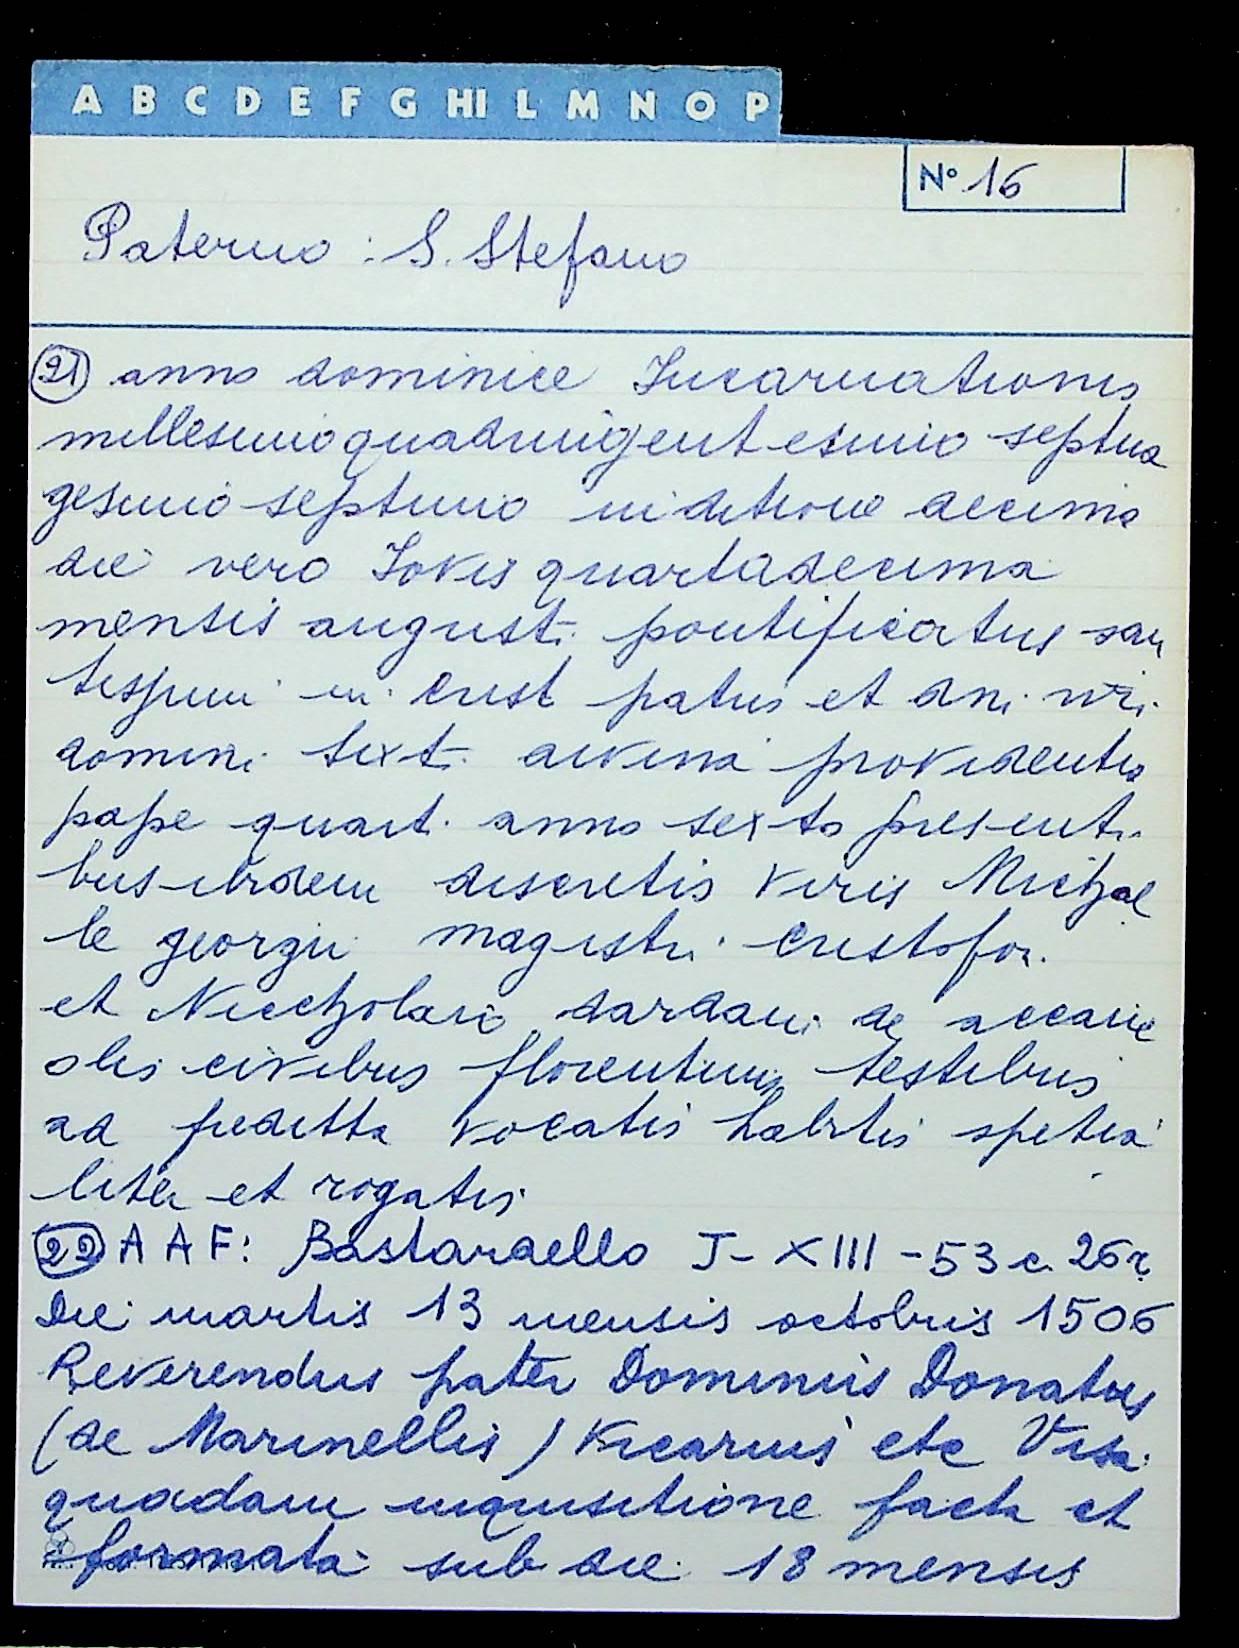 A B C D E F G HI L M N O P
N° 16
Paterno : S. Stefano
21 anno dominice Incarnationis
millesimo quadringentesimo septua
gesimo septimo inditione decima
die vero Jovis quartadecima
mensis august. pontificatus san
tissimi in crist patris et dni. nri.
domini Sixt. divina providentia
pape quart. anno sexto presenti
bus ibidem discretis viris Michae
le georgii magistri cristofor.
et Niccholaio dardani de acciai
olis civibus florentinis testibus
ad preditta vocatis habitis spetia
liter et rogatis
22 A A F: Bastardello J - XIII - 53 c. 26 r.
Die martis 13 mensis octobris 1506
Reverendus pater Dominus Donatus
(de Marinellis) Vicarius etc Visa
quadam inquisitione facta et
formata sub die 18 mensis